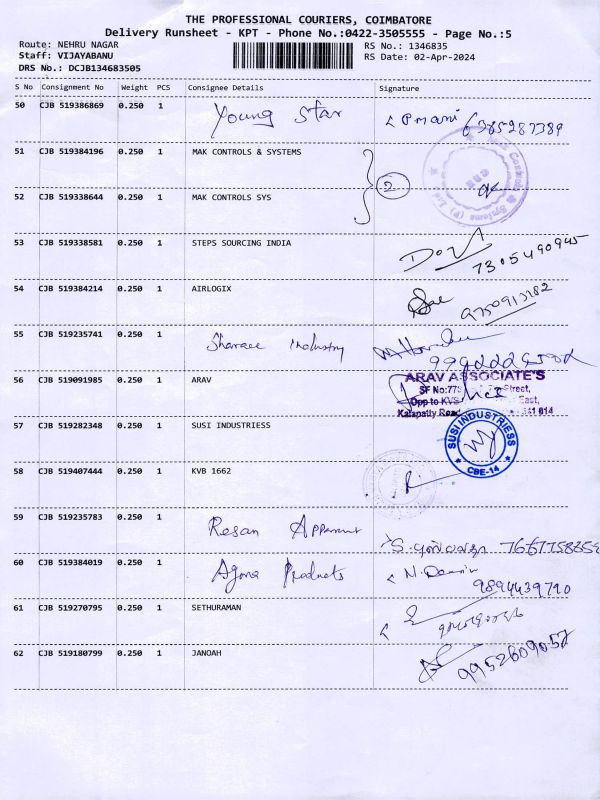 THE PROFESSIONAL COURIERS, COIMBATORE
Delivery Runsheet - KPT - Phone No.:0422-3505555 - Page No.:5
Route: NEHRU NAGAR
RS No.: 1346835
Staff: VIJAYABANU
RS Date: 02-Apr-2024
DRS No.: DCJB134683505
S No Consignment No Weight PCS Consignee Details Signature
50 CJB 519386869 0.250 1 Young Star Pmani 6385287389
51 CJB 519384196 0.250 1 MAK CONTROLS & SYSTEMS
2
52 CJB 519338644 0.250 1 MAK CONTROLS SYS
53 CJB 519338581 0.250 1 STEPS SOURCING INDIA
7305490945
54 CJB 519384214 0.250 1 AIRLOGIX
55 CJB 519235741 0.250 1 Industry
56 CJB 519091985 0.250 1 ARAV
ARAV ASSOCIATE'S
SF No:77 Street,
Opp to KVS East,
Kalapatty Road 641 014
57 CJB 519282348 0.250 1 SUSI INDUSTRIESS
SUSI INDUSTRIESS
CBE-14
58 CJB 519407444 0.250 1 KVB 1662
59 CJB 519235783 0.250 1 Resan
60 CJB 519384019 0.250 1 Products
9894439790
61 CJB 519270795 0.250 1 SETHURAMAN
62 CJB 519180799 0.250 1 JANOAH
9952609057